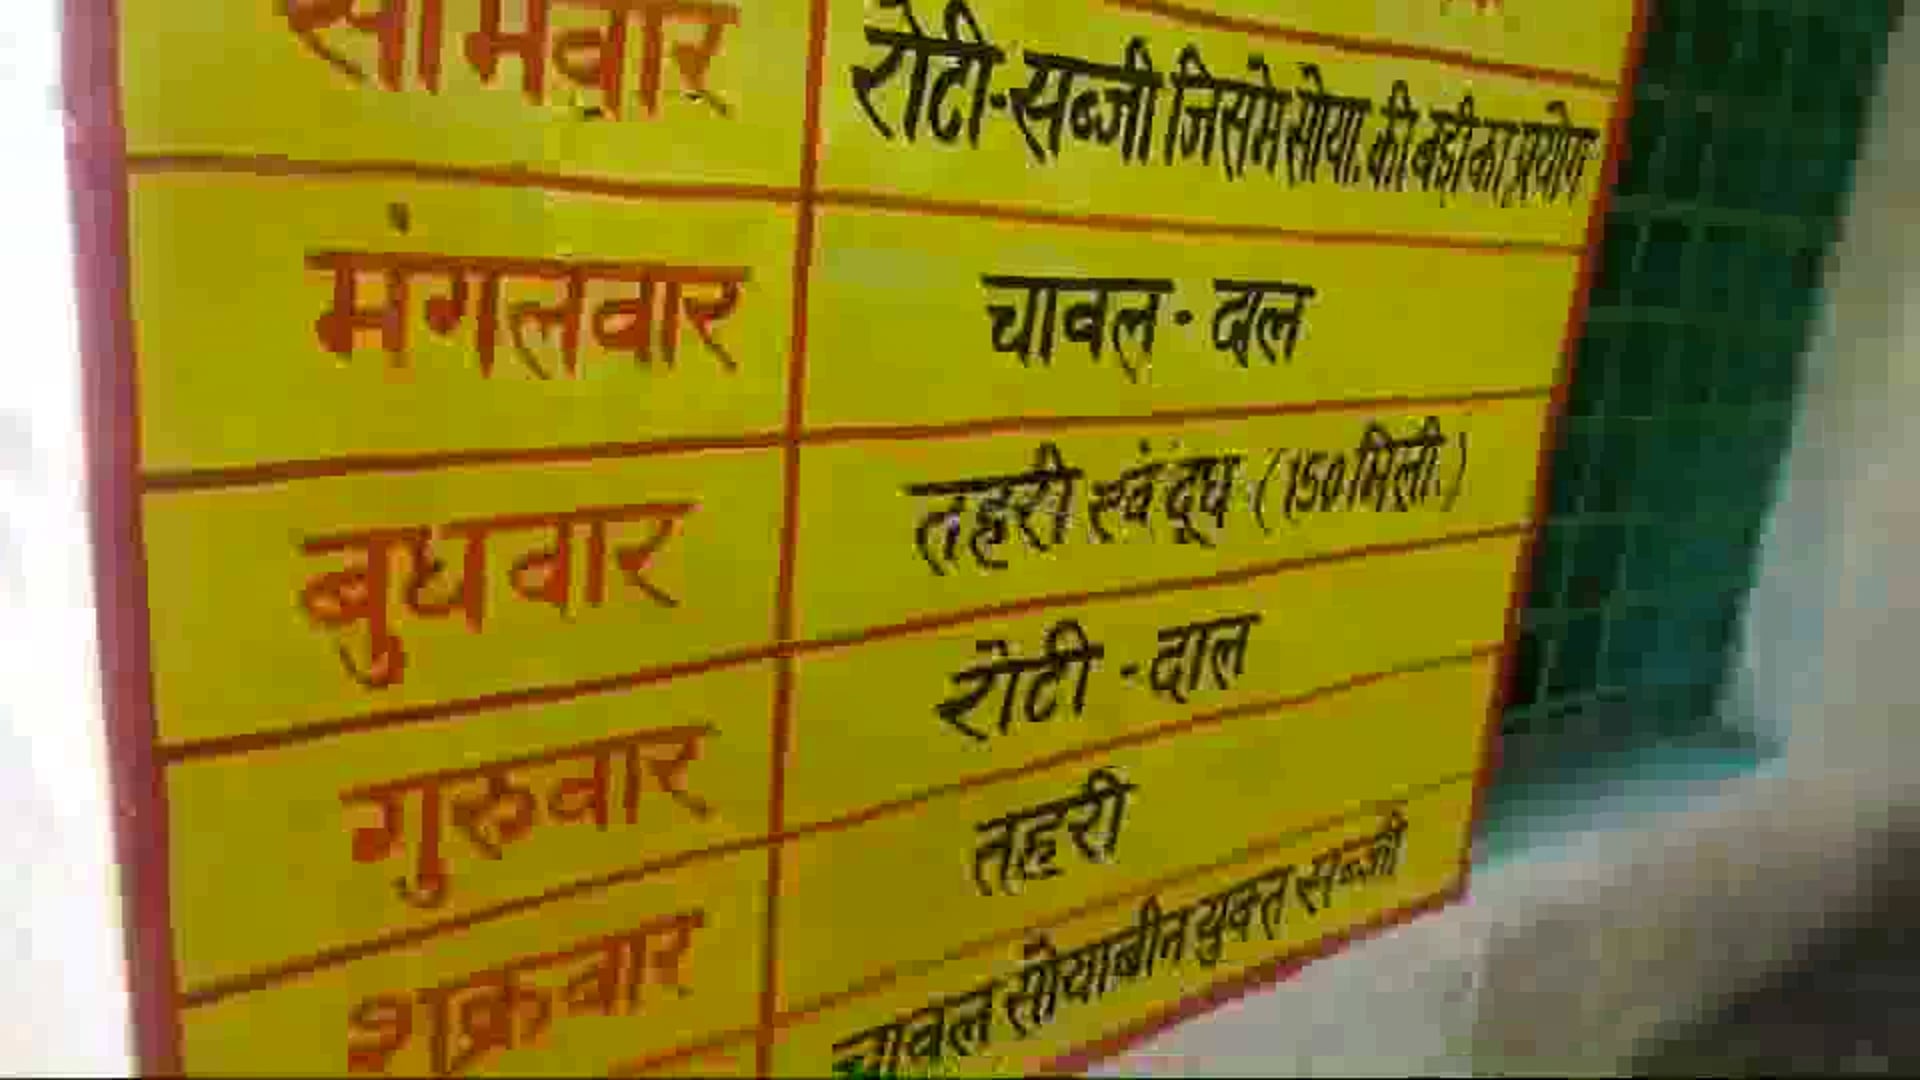 सोमवार रोटी-सब्जी जिसमे सोया. की बड़ी का प्रयोग
मंगलवार चावल - दाल
बुधवार तहरी एवं दूध (150 मिली.)
गुरुवार रोटी - दाल
शुक्रवार तहरी
चावल सोयाबीन युक्त सब्जी